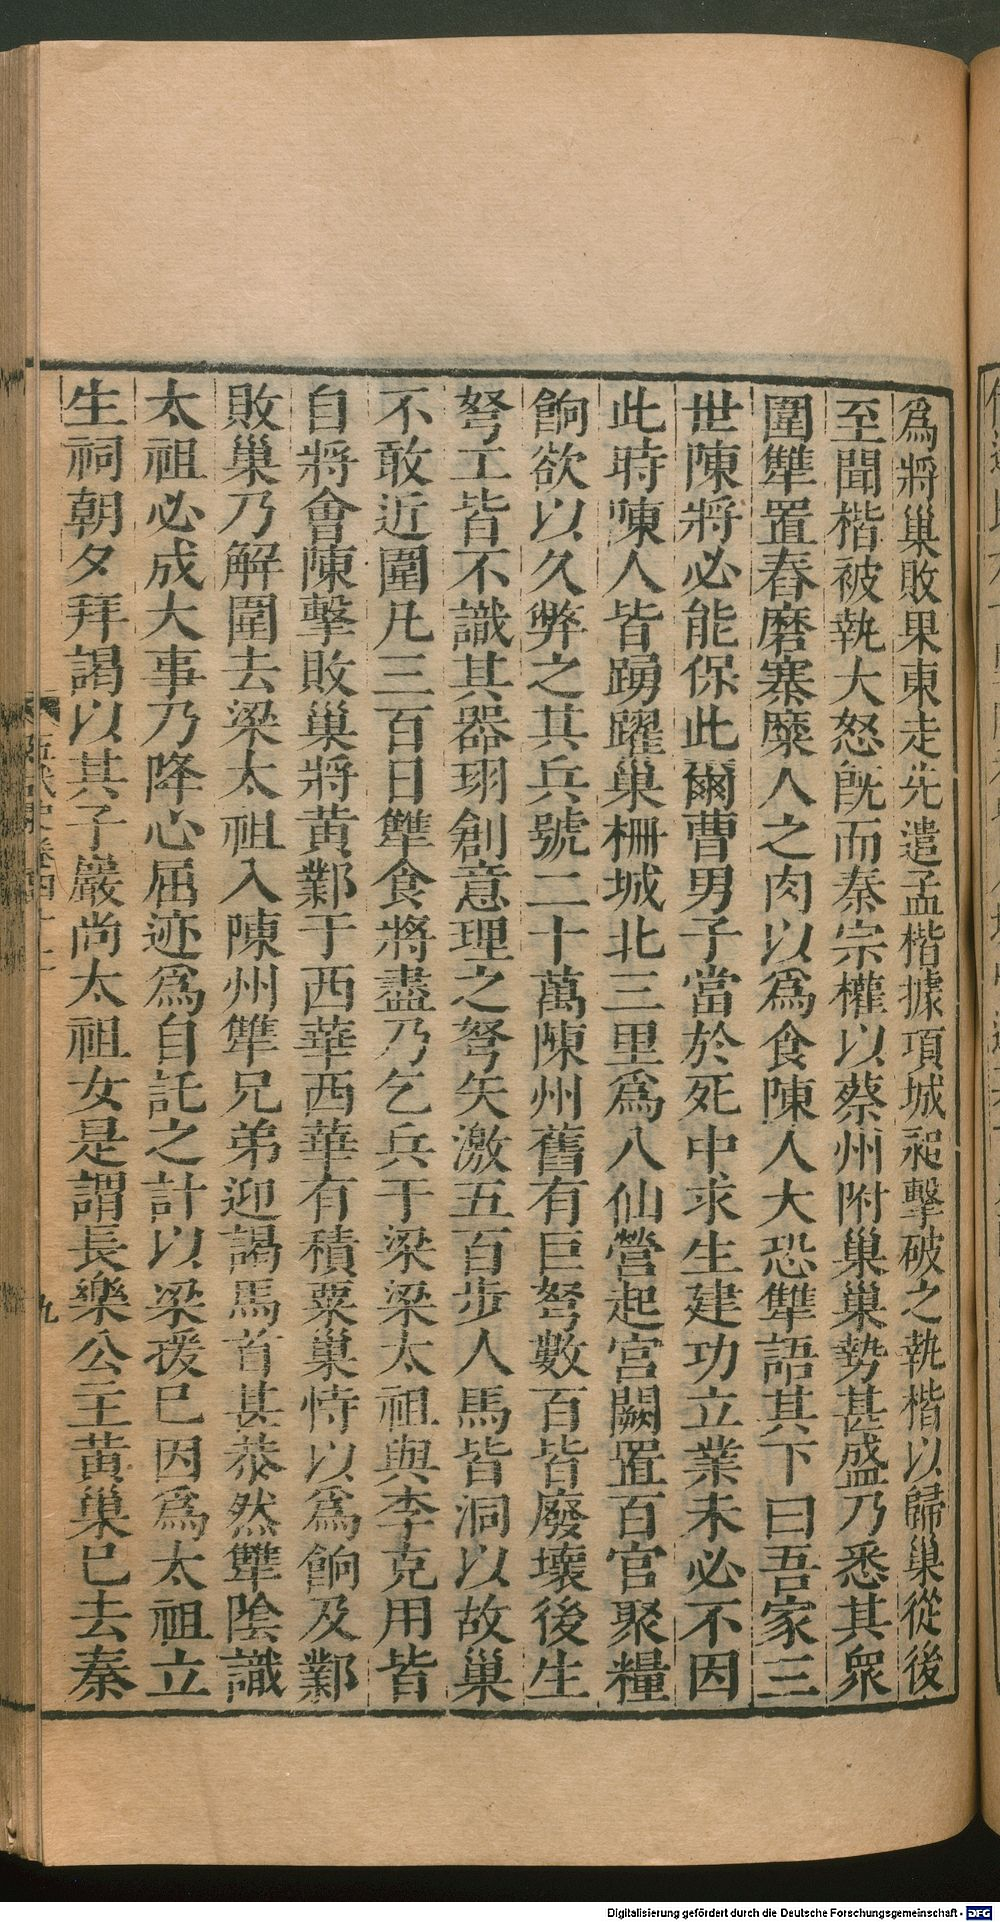 爲將巢敗果東走先遣孟楷據項城昶擊破之執楷以歸巢從後
至聞楷被執大怒旣而秦宗權以蔡州附巢巢勢甚盛乃悉其衆
圍犨置舂磨寨糜人之肉以爲食陳人大恐犨語其下曰吾家三
世陳將必能保此爾曹男子當於死中求生建功立業未必不因
此時陳人皆踴躍巢柵城北三里爲八仙營起宮闕置百官聚糧
餉欲以久弊之其兵號二十萬陳州舊有巨弩數百皆廢壞後生
弩工皆不識其器珝創意理之弩矢激五百步人馬皆洞以故巢
不敢近圍凡三百日犨食將盡乃乞兵于梁梁太祖與李克用皆
自將會陳擊敗巢將黃鄴于西華西華有積粟巢恃以爲餉及鄴
敗巢乃解圍去梁太祖入陳州犨兄弟迎謁馬首甚恭然犨陰識
太祖必成大事乃降心屈迹爲自託之計以梁援已因爲太祖立
生祠朝夕拜謁以其子巖尚太祖女是謂長樂公主黃巢已去秦
九
Digitalisierung gefördert durch die Deutsche Forschungsgemeinschaft - DFG